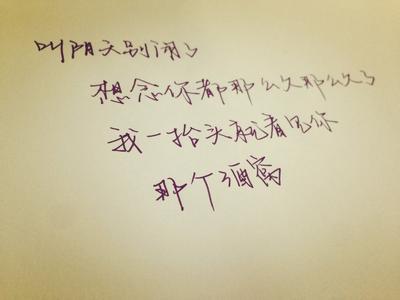 叫阴天别闹了
想念你都那么久那么久了
我一抬头就看见你
那个酒窝